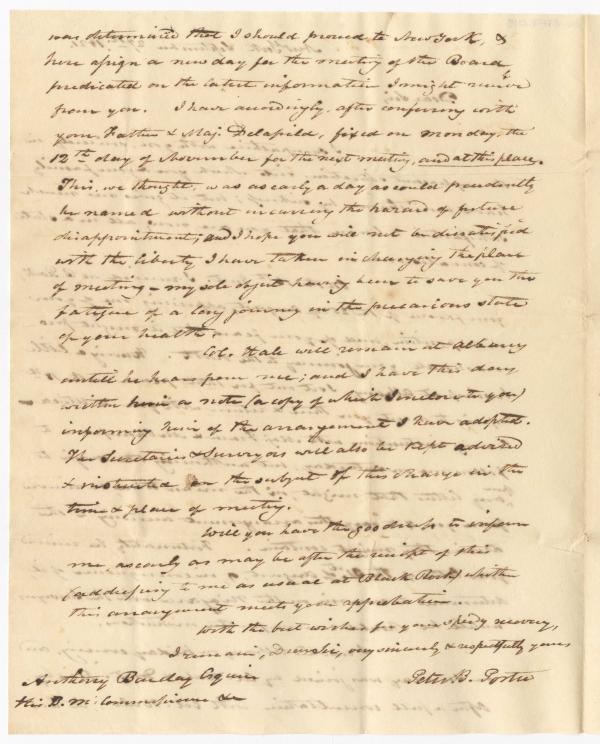 was determined that I should proceed to New York, &
here assign a new day for the meeting of the Board
predicated on the latest information I might receive
from you. I have accordingly, after conferring with
your Father & Maj. Delafield, fixed on Monday, the
12th day of November for the next meeting, and at this place.
This, we thought, was as early a day as could prudently
be named without incurring the hazard of future
disappointment; and I hope you will not be dissatisfied
with the liberty I have taken in changing the place
of meeting - my sole object having been to save you the
fatigue of a long journey in the precarious state
of your health.
Col. Hale will remain at Albany
untill he hears from me; and I have this day
written him a note (a copy of which I enclose to you)
informing him of the arrangement I have adopted.
The Secretaries & Surveyors will also be kept advised
& instructed on the subject of this change in the
time & place of meeting.
Will you have the goodness to inform
me, as early as may be after the receipt of this
(addressing to me as usual at Black Rock) whether
this arrangement meets your approbation.
With the best wishes for your speedy recovery,
I remain, Dear Sir, very sincerely & respectfully yours
Peter B. Porter
Anthony Barclay Esquire
His B. M. Commissioner &c